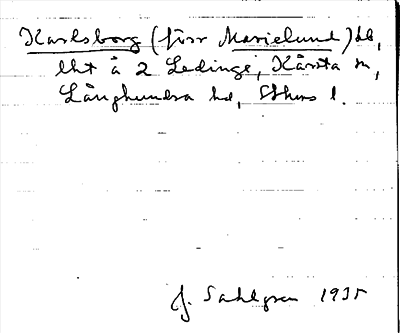 Karlsborg (förr Marielund) lh,
lht å 2 Ledinge, Kårsta sn,
Långhundra hd, Sthms l.
J. Sahlgren 1935